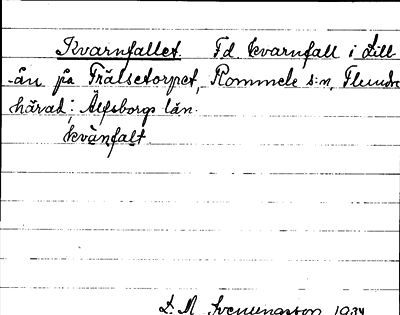 Kvarnfallet. F.d. kvarnfall i Lill-
ån på Trälsetorpet, Rommele s:n, Flundre
härad, Älfsborgs län.
kvänfalt
D. M. Svenungsson 1934